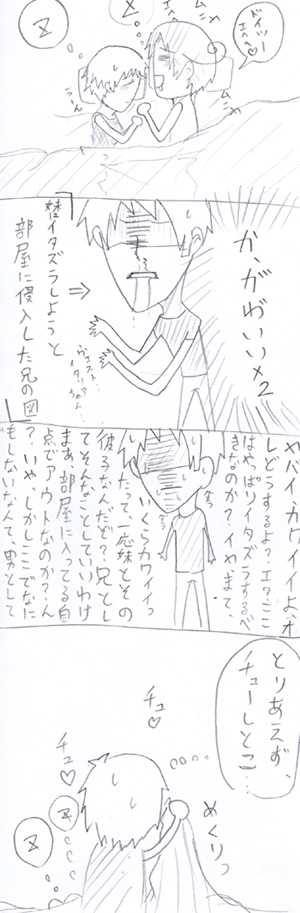 Z
Z
ドイツー
エヘヘ♡
ムニャ
ムニャ
か、がわいい×2
ヴェスト…
イタリアちゃん…
⇒
「妹にイタズラしようと
部屋に侵入した兄の図」
ヤバイ、カワイイよ、オ
レどうするよ?エ?ここ
はやっぱりイタズラするべ
きなのか?イヤまて、
いくらカワイイっ
たって一応妹とその
彼氏なんだぞ?兄とし
てそんなことしていいわけ
まあ、部屋に入ってる自
点でアウトなのか?ん
?いや、しかしここでなに
もしないなんて、男として
とりあえず、
チューしとこ…
チュ♡
チュ♡
めくりっ
Z
Z